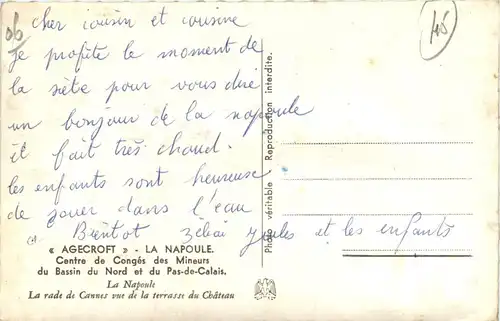 cher cousin et cousine
je profite le moment de
la siète pour vous dire
un bonjour de la napoule
il fait très chaud.
les enfants sont heureuse
de jouer dans l'eau
Bientot Jules et les enfants
« AGECROFT » - LA NAPOULE.
Centre de Congés des Mineurs
du Bassin du Nord et du Pas-de-Calais.
La Napoule
La rade de Cannes vue de la terrasse du Château
Photo véritable Reproduction interdite.